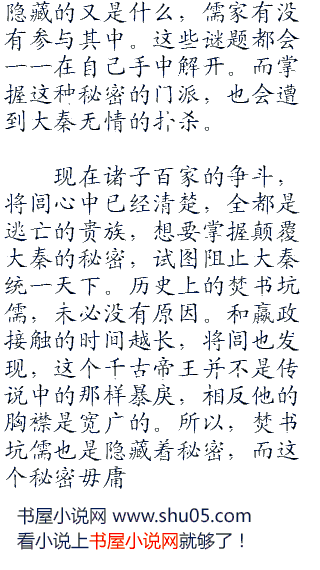 隐藏的又是什么，儒家有没
有参与其中。这些谜题都会
一一在自己手中解开。而掌
握这种秘密的门派，也会遭
到大秦无情的扑杀。
现在诸子百家的争斗，
将闾心中已经清楚，全都是
逃亡的贵族，想要掌握颠覆
大秦的秘密，试图阻止大秦
统一天下。历史上的焚书坑
儒，未必没有原因。和嬴政
接触的时间越长，将闾也发
现，这个千古帝王并不是传
说中的那样暴戾，相反他的
胸襟是宽广的。所以，焚书
坑儒也是隐藏着秘密，而这
个秘密毋庸
书屋小说网 www.shu05.com
看小说上书屋小说网就够了！